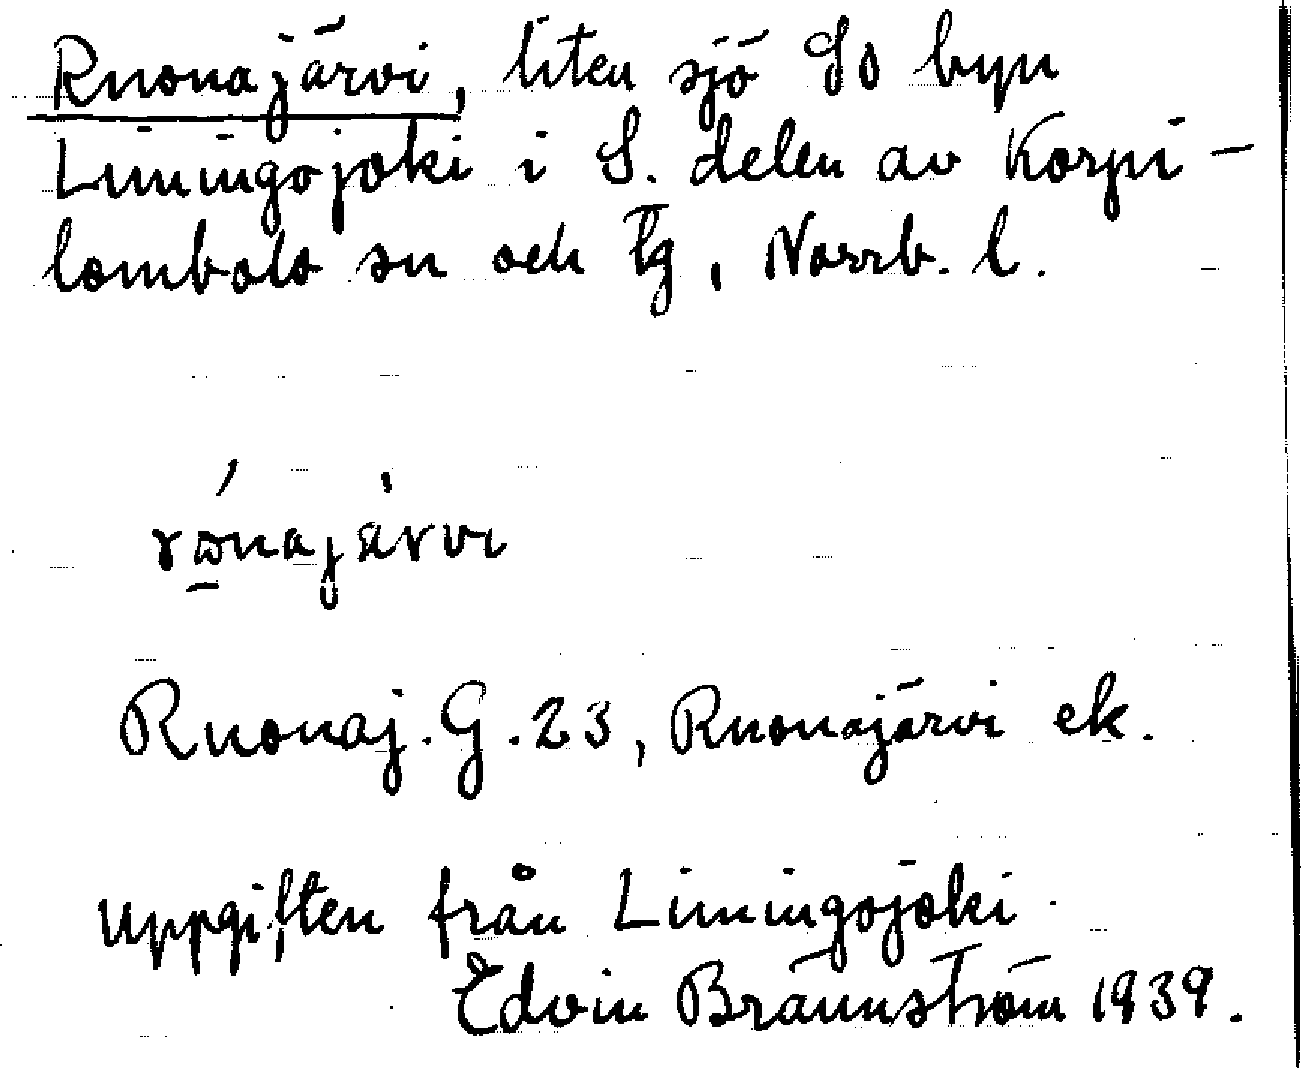 Ruonajärvi, liten sjö SO byn
Liiningojoki i S. delen av Korpi-
lombolo sn och tg, Norrb. l.
Ruonaj. G. 23, Ruonajärvi ek.
Uppgiften från Limingojoki
Edvin Brännström 1939.